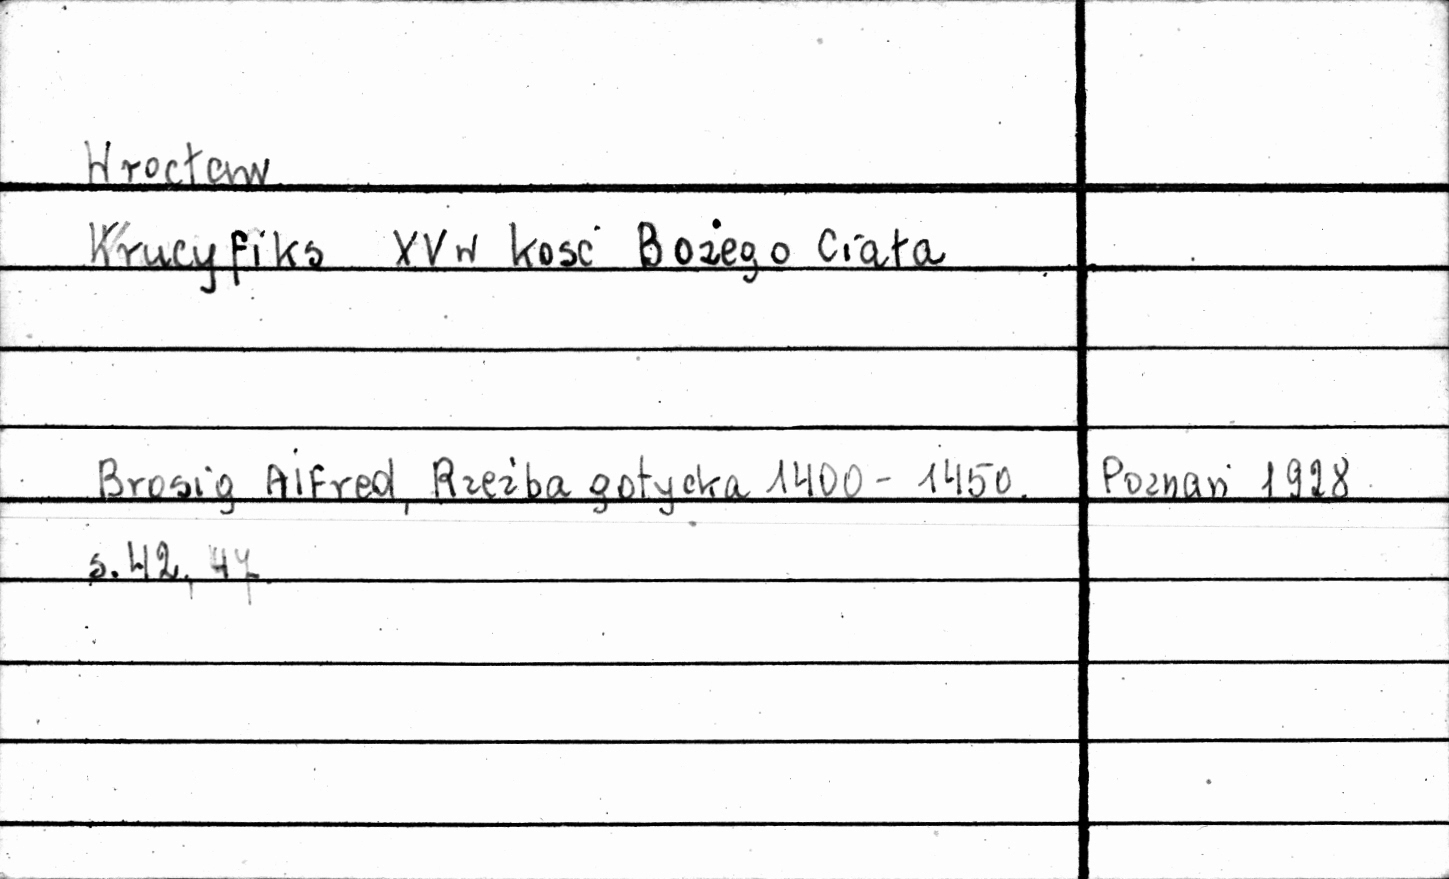 Wrocław
Krucyfiks XV w kość Bożego Ciała
Brosig Alfred, Rzeźba gotycka 1400 - 1450. Poznań 1928
s. 42, 47